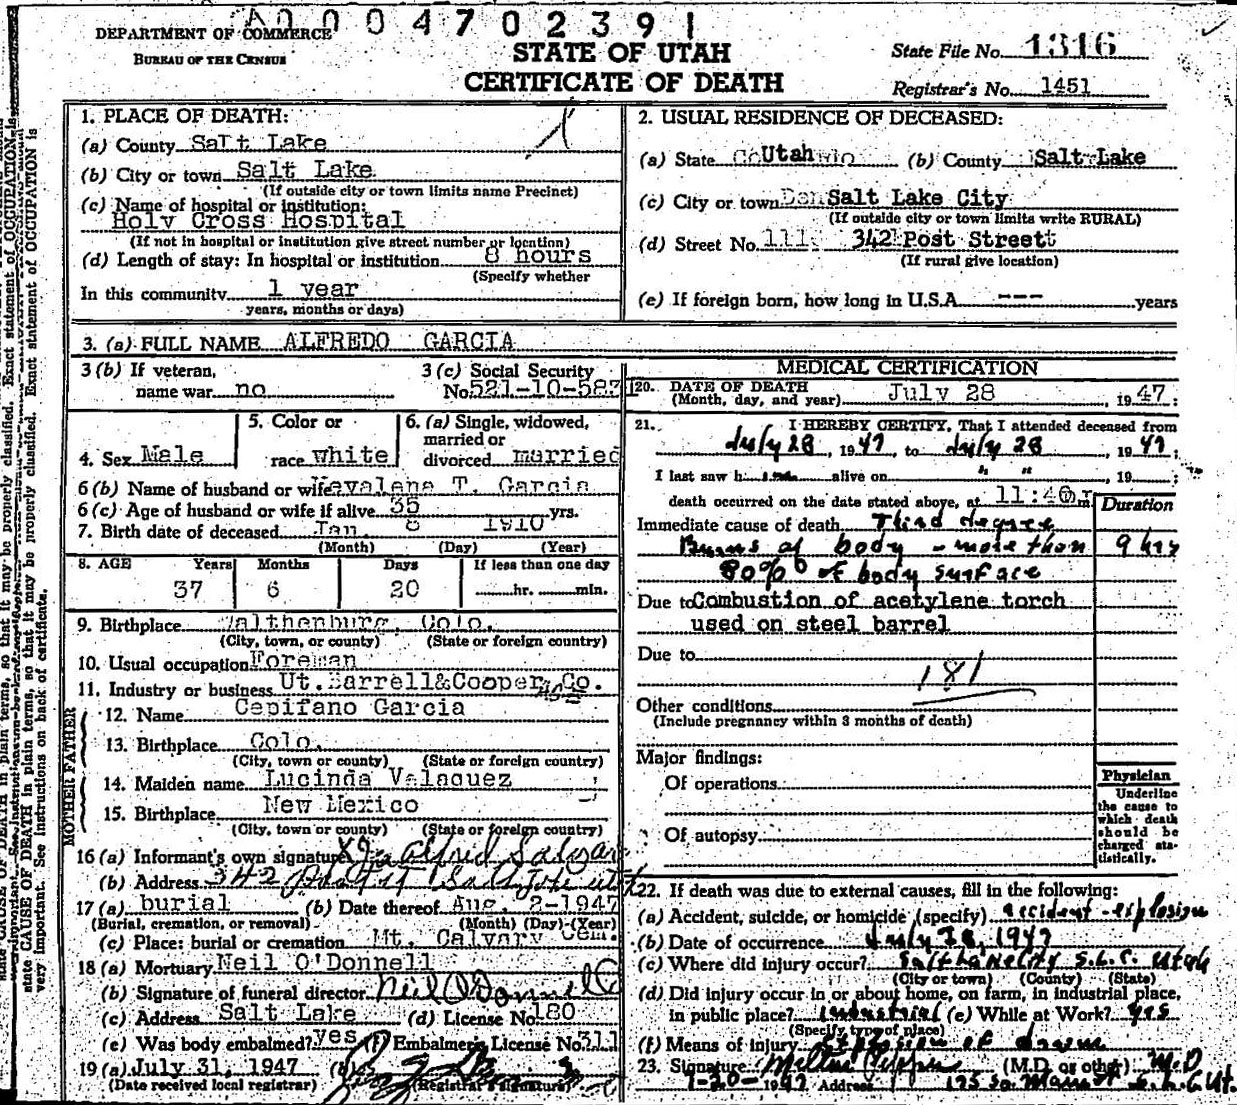 A0004702391
DEPARTMENT OF COMMERCE
BUREAU OF THE CENSUS
STATE OF UTAH
CERTIFICATE OF DEATH
State File No. 1316
Registrar's No. 1451
1. PLACE OF DEATH:
(a) County Salt Lake
(b) City or town Salt Lake
(If outside city or town limits name Precinct)
(c) Name of hospital or institution:
Holy Cross Hospital
(If not in hospital or institution give street number or location)
(d) Length of stay: In hospital or institution 8 hours
(Specify whether
In this community 1 year
years, months or days)
2. USUAL RESIDENCE OF DECEASED:
(a) State Utah (b) County Salt Lake
(c) City or town Salt Lake City
(If outside city or town limits write RURAL)
(d) Street No. 342 Post Street
(If rural give location)
(e) If foreign born, how long in U.S.A. --- years
3. (a) FULL NAME ALFREDO GARCIA
3 (b) If veteran,
name war no
3 (c) Social Security
No. 521-10-5871
4. Sex Male
5. Color or
race white
6. (a) Single, widowed,
married or
divorced married
6 (b) Name of husband or wife T. Garcia
6 (c) Age of husband or wife if alive 35 yrs.
7. Birth date of deceased Jan. 8 1910
(Month) (Day) (Year)
8. AGE Years Months Days If less than one day
37 6 20 hr. min.
9. Birthplace Colo.
(City, town, or county) (State or foreign country)
10. Usual occupation Foreman
11. Industry or business Ut. Barrell&Cooper Co.
MOTHER FATHER
12. Name Cepifano Garcia
13. Birthplace Colo.
(City, town, or county) (State or foreign country)
14. Maiden name Lucinda Velaquez
15. Birthplace New Mexico
(City, town or county) (State or foreign country)
16 (a) Informant's own signature Alfred Salazar
(b) Address 342 Post St Salt Lake Utah
17 (a) burial (b) Date thereof Aug. 2-1947
(Burial, cremation, or removal) (Month) (Day) (Year)
(c) Place: burial or cremation Mt. Calvary Cem.
18 (a) Mortuary Neil O'Donnell
(b) Signature of funeral director Neil O'Donnell
(c) Address Salt Lake (d) License No. 180
(e) Was body embalmed? yes (f) Embalmer's License No. 311
19 (a) July 31, 1947 (b)
(Date received local registrar) (Registrar's signature)
MEDICAL CERTIFICATION
20. DATE OF DEATH
(Month, day, and year) July 28, 1947:
21. I HEREBY CERTIFY, That I attended deceased from
July 28, 1947, to July 28, 1947;
I last saw h alive on " ", 19 ;
death occurred on the date stated above, at 11:40 m
Duration
Immediate cause of death Third degree
Burns of body - more than 9 hrs
80% of body surface
Due to Combustion of acetylene torch
used on steel barrel
Due to
181
Other conditions
(Include pregnancy within 3 months of death)
Major findings:
Of operations
Of autopsy
Physician
Underline
the cause to
which death
should be
charged sta-
tistically.
22. If death was due to external causes, fill in the following:
(a) Accident, suicide, or homicide (specify) accident - explosion
(b) Date of occurrence July 28, 1947
(c) Where did injury occur? Salt Lake City S.L.C. Utah
(City or town) (County) (State)
(d) Did injury occur in or about home, on farm, in industrial place,
in public place? Industrial (e) While at Work? yes
(Specify type of place)
(f) Means of injury Explosion of drum
23. Signature (M.D. or other) M.D
1947 Address 175 So. Main St S.L.C. Ut.
state CAUSE OF DEATH in plain terms, so that it may be properly classified. Exact statement of OCCUPATION is
very important. See instructions on back of certificate.